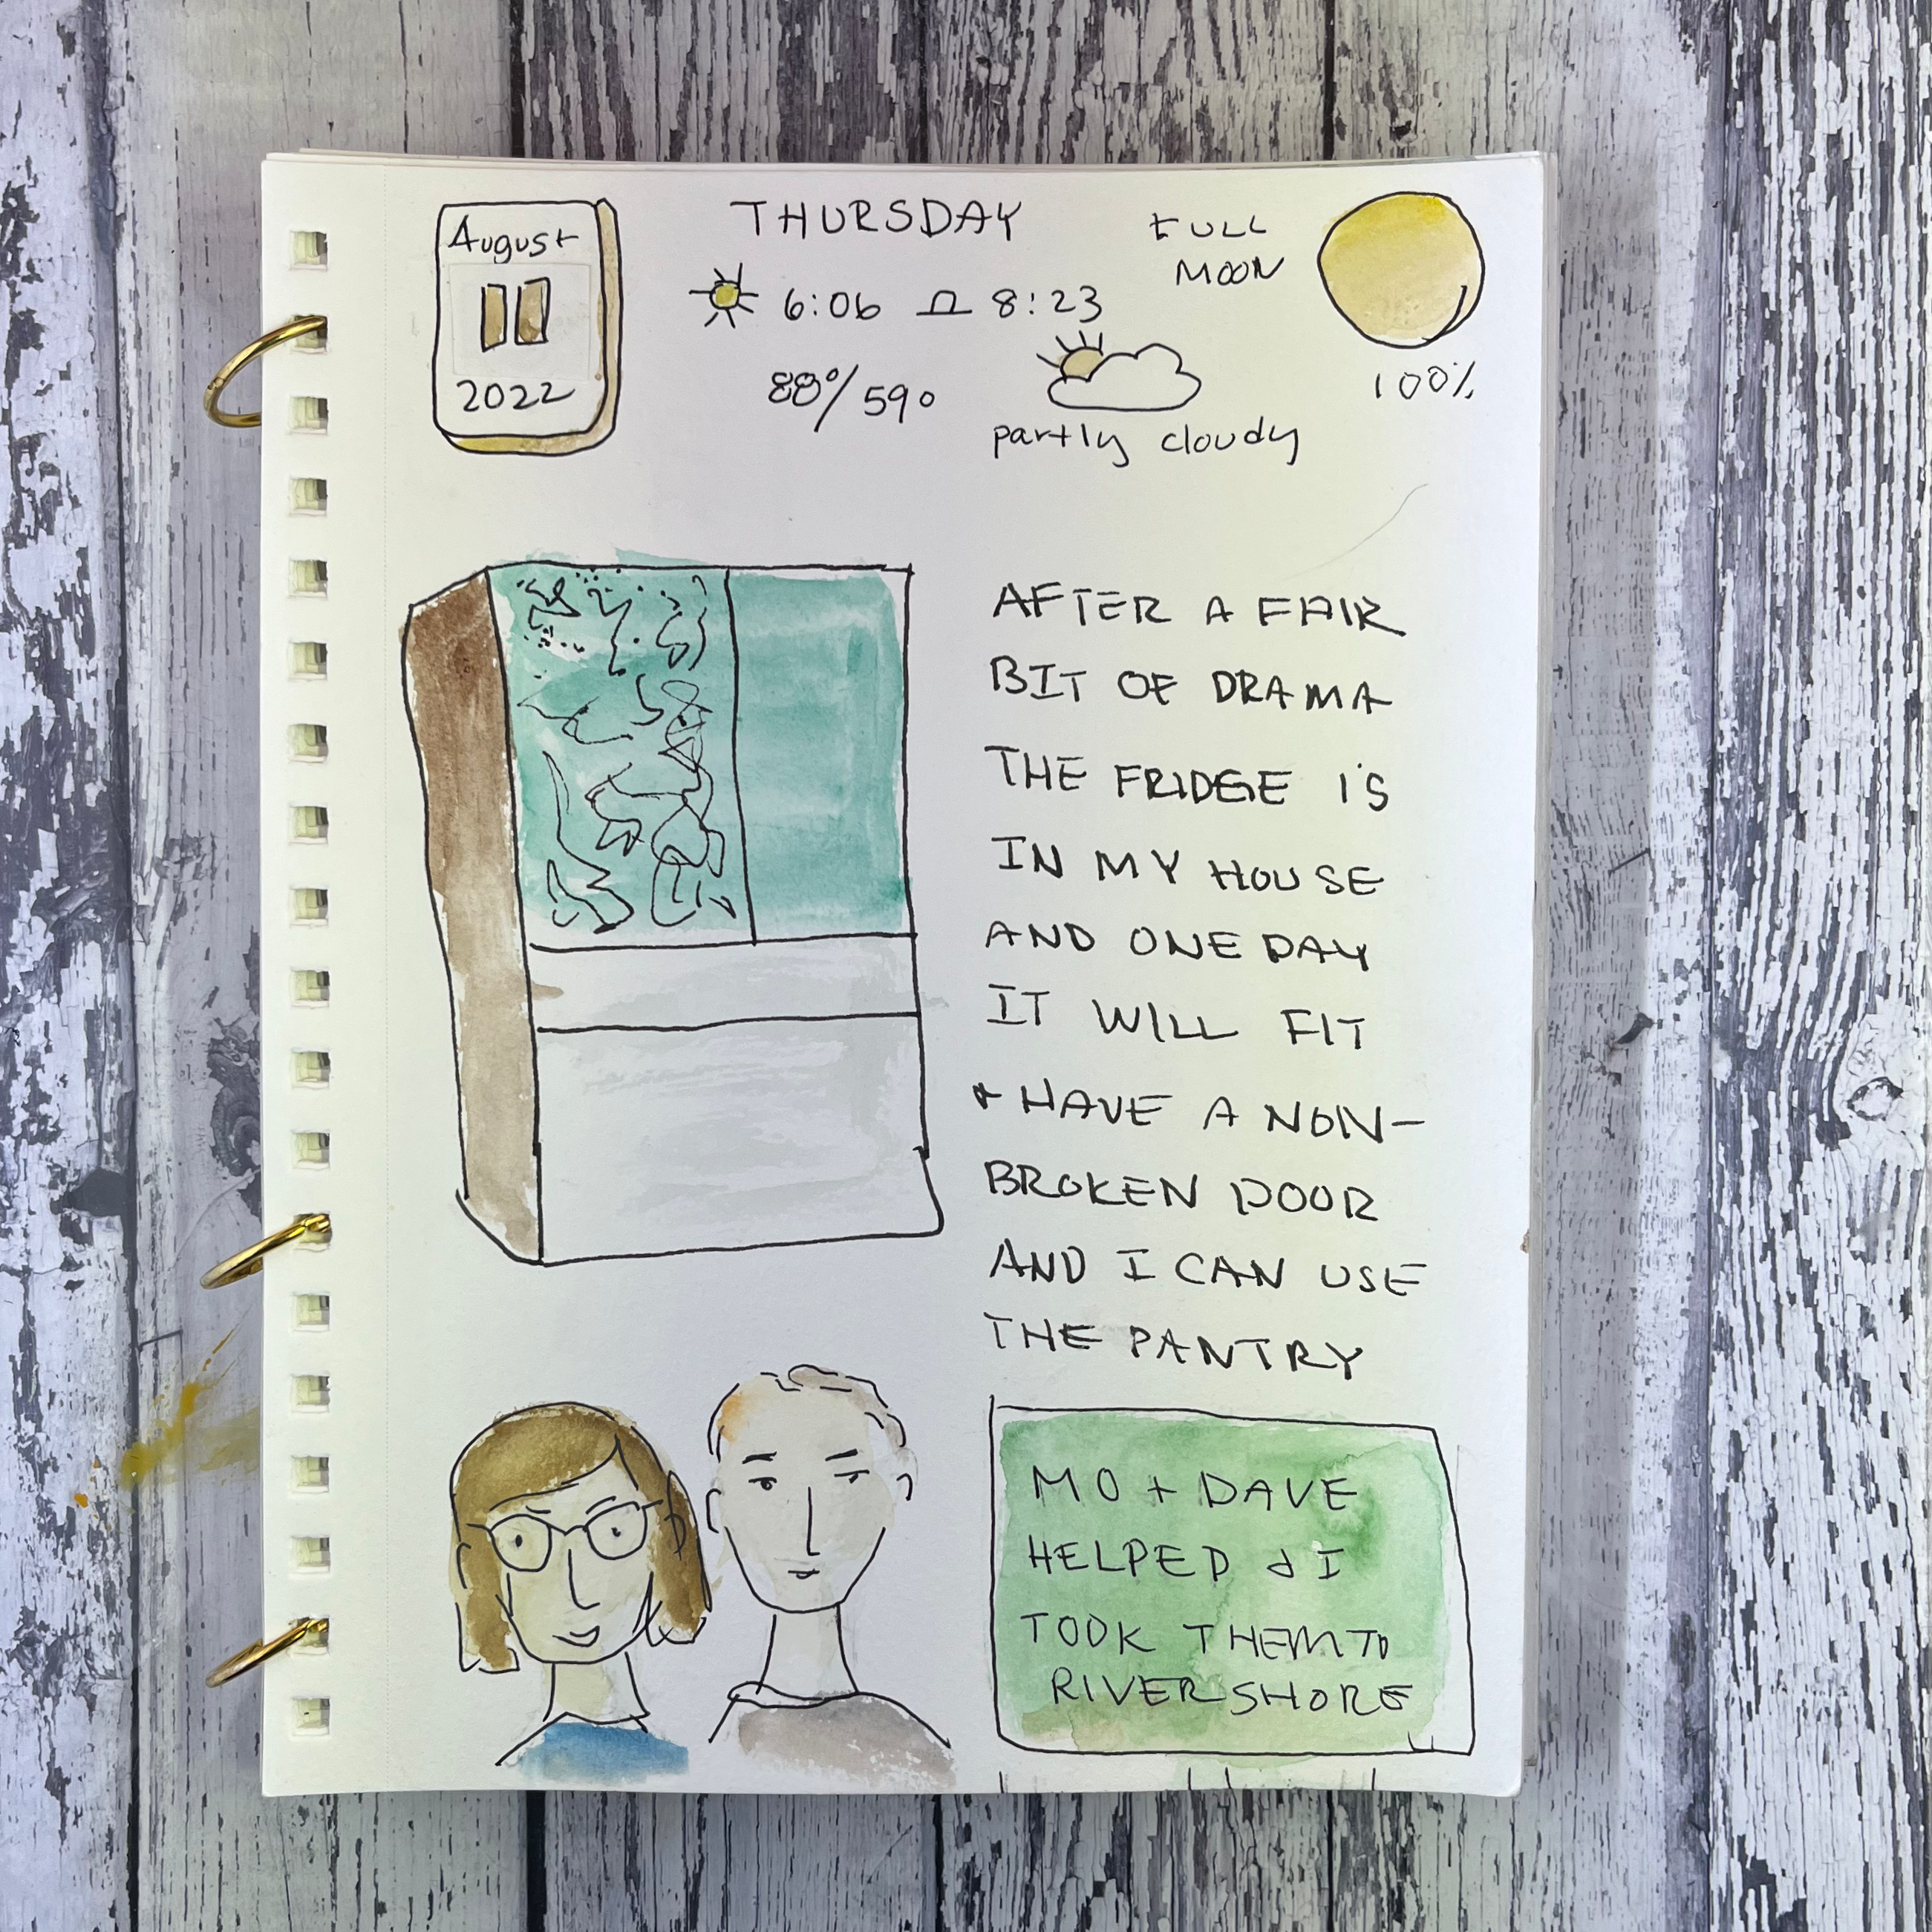 August
11
2022
THURSDAY
6:06 8:23
88°/59°
partly cloudy
FULL
MOON
100%
AFTER A FAIR
BIT OF DRAMA
THE FRIDGE IS
IN MY HOUSE
AND ONE DAY
IT WILL FIT
+ HAVE A NON-
BROKEN DOOR
AND I CAN USE
THE PANTRY
MO + DAVE
HELPED & I
TOOK THEM TO
RIVERSHORE